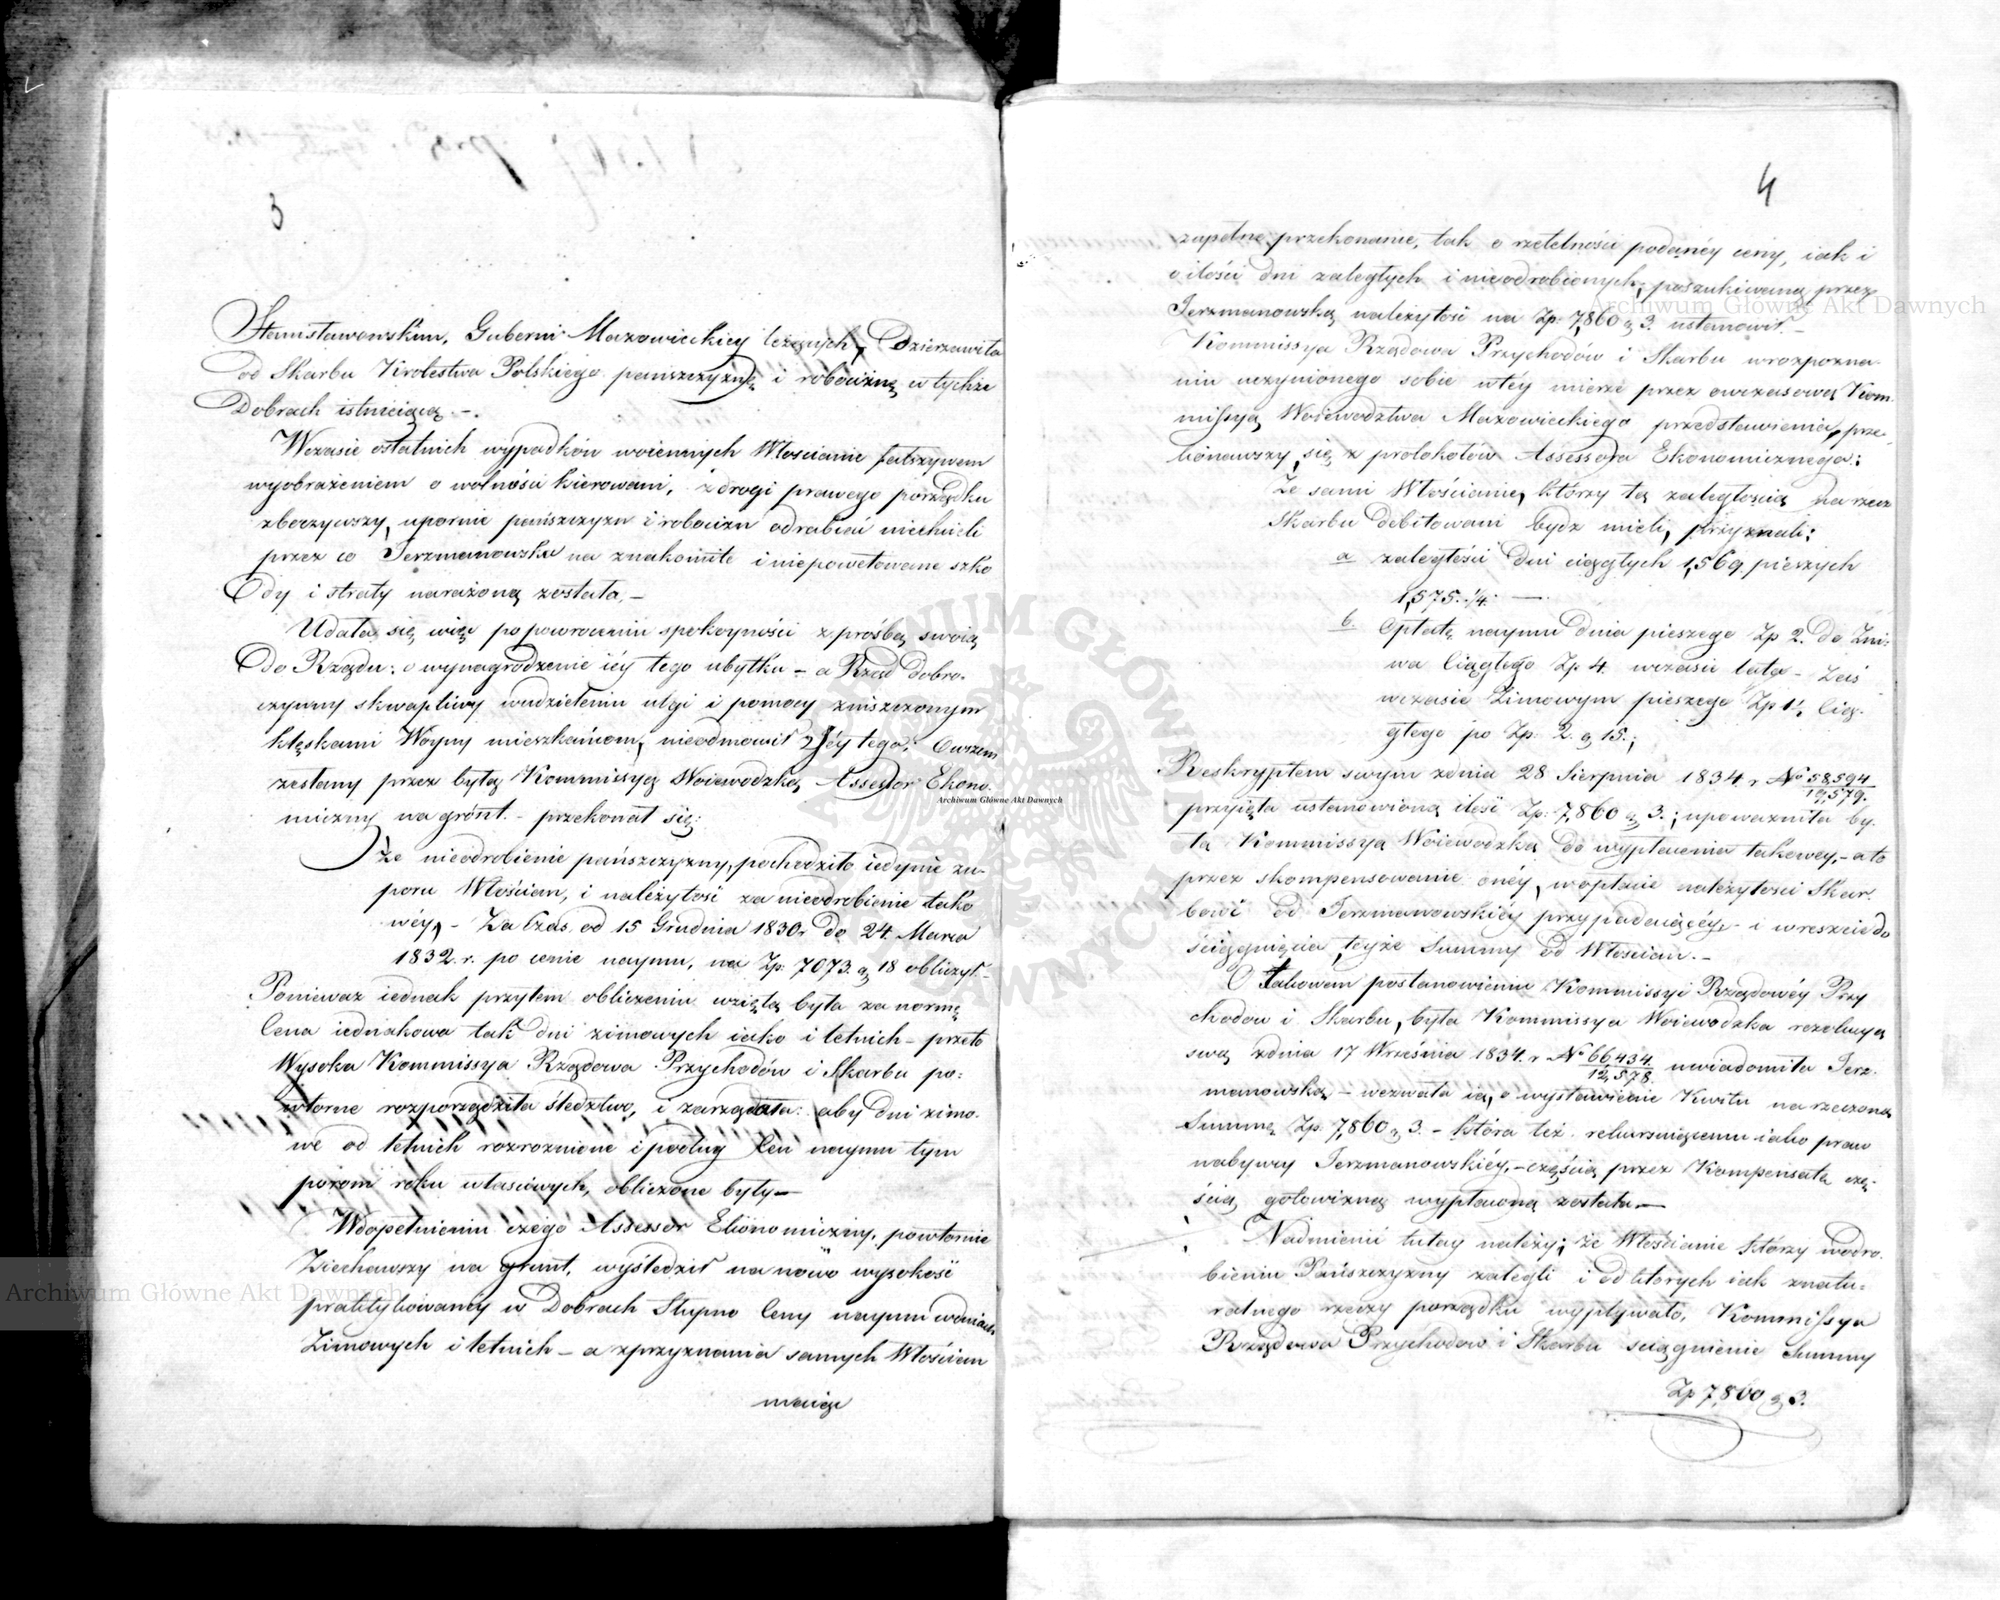 3
Stanisławowskim, Gubernii Mazowieckiey leżących, Dzierżawiła
od Skarbu Królestwa Polskiego pańszczyznę i robociznę w tychże
Dobrach istnieiącą. –
Wczasie ostatnich wypadków woiennych Włościanie fałszywem
wyobrażeniem o wolności kierowani, z drogi prawego porządku
zboczywszy, upornie pańszczyzn i robocizn odrabiać niechcieli
przez co Jerzmanowska na znakomite i niepowetowane szko
dy i straty narażoną została, –
Udała się więc po powróceniu spokoyności z prośbą swoią
do Rządu: o wynagrodzenie iéy tego ubytku – a Rząd dobro-
czynny skwapliwy wudzieleniu ulgi i pomocy zniszczonym
klęskami Woyny mieszkańcom, nieodmówił Jéy tego; Owszem
zesłany przez byłą Kommissyą Woiewodzką, Assessor Ekono-
miczny na grónt. – przekonał się:
że nieodrobienie pańszczyzny, pochodziło iedynie zu-
poru Włościan, i należytość za nieodrobienie tako
wéy, – Za Czas od 15 Grudnia 1830 r. do 24 Marca
1832. r. po cenie naymu, na Zp: 7073. g 18 obliczył. –
Ponieważ iednak przytem obliczeniu wziętą była za normę
Cena iednakowa tak dni zimowych iako i letnich – przeto
Wysoka Kommissya Rządowa Przychodów i Skarbu po-
wtórne rozporządziła śledztwo, i zarządała: aby dni zimo-
we od letnich rozróżnione i podług Cen naymu tym
porom roku właściwych, obliczone były –
Wdopełnieniu czego Assessor Ekonomiczny, powtórnie
Ziechawszy na grunt, wyśledził na nowo wysokość
praktykowaney w Dobrach Słupno Ceny naymu wdniach
Zimowych i letnich – a zprzyznania samych Włościan
maiąc
4
zupełne przekonanie, tak o rzetelności podanéy ceny, iak i
o ilości dni zaległych i nieodrobionych, poszukiwaną przez
Jerzmanowską należytość na Zp: 7,860 g 3. ustanowił. –
Kommissya Rządowa Przychodów i Skarbu wrozpozna-
niu uczynionego sobie wtéy mierze przez owczasową Kom-
missyą Woiewództwa Mazowieckiego przedstawienia, prze-
konawszy się z protokołów Assessora Ekonomicznego:
Że sami Włościanie, którzy tą zaległością na rzecz
Skarbu debitowani bydź mieli, przyznali:
a zaległości dni ciągłych 1,569. pieszych
1,575. 1/4. –
b. Opłatę naymu dnia pieszego Zp 2. do Żni-
wa Ciągłego Zp 4. wczasie lata – Zaś
wczasie Zimowym pieszego Zp 1 1/2 Cią-
głego po Zp: 2. g 15.;
Reskryptem swym zdnia 28 Sierpnia 1834. r No 58,594/19,579.
przyięła ustanowioną ilość Zp: 7,860 g 3.; upoważniła by-
ła Kommissya Woiewodzka do wypłacenia takowey, – a to
przez skompensowanie onéy, wopłacie należytości Skar-
bowi od Jerzmanowskiéy przypadaiącéy, – i wreszcie do
ściągnięcia teyże Summy od Włościan. –
O takowem postanowieniu Kommissyi Rządowéy Przy
chodów i Skarbu, była Kommissya Woiewodzka rezolucyą
swą zdnia 17 Września 1834. r No 66434/12,578. uwiadomiła Jerz-
manowską – wezwała ią, o wystawienie Kwitu na rzeczoną
Summę Zp. 7,860 g 3. – która też rekursuiącemu iako praw
nabywcy Jerzmanowskiéy, – częścią przez Kompensatę czę-
ścią gotowizną wypłaconą została –
Nadmienić tutay należy; że Włościanie którzy wodro-
bieniu Pańszczyzny zalegli i od których iak znatu-
ralnego rzeczy porządku wypływało, Kommissya
Rządowa Przychodów i Skarbu ściągnienie Summy
Zp 7,860 g 3.
Archiwum Główne Akt Dawnych
Archiwum Główne Akt Dawnych
Archiwum Główne Akt Dawnych
ARCHIWUM GŁÓWNE AKT DAWNYCH